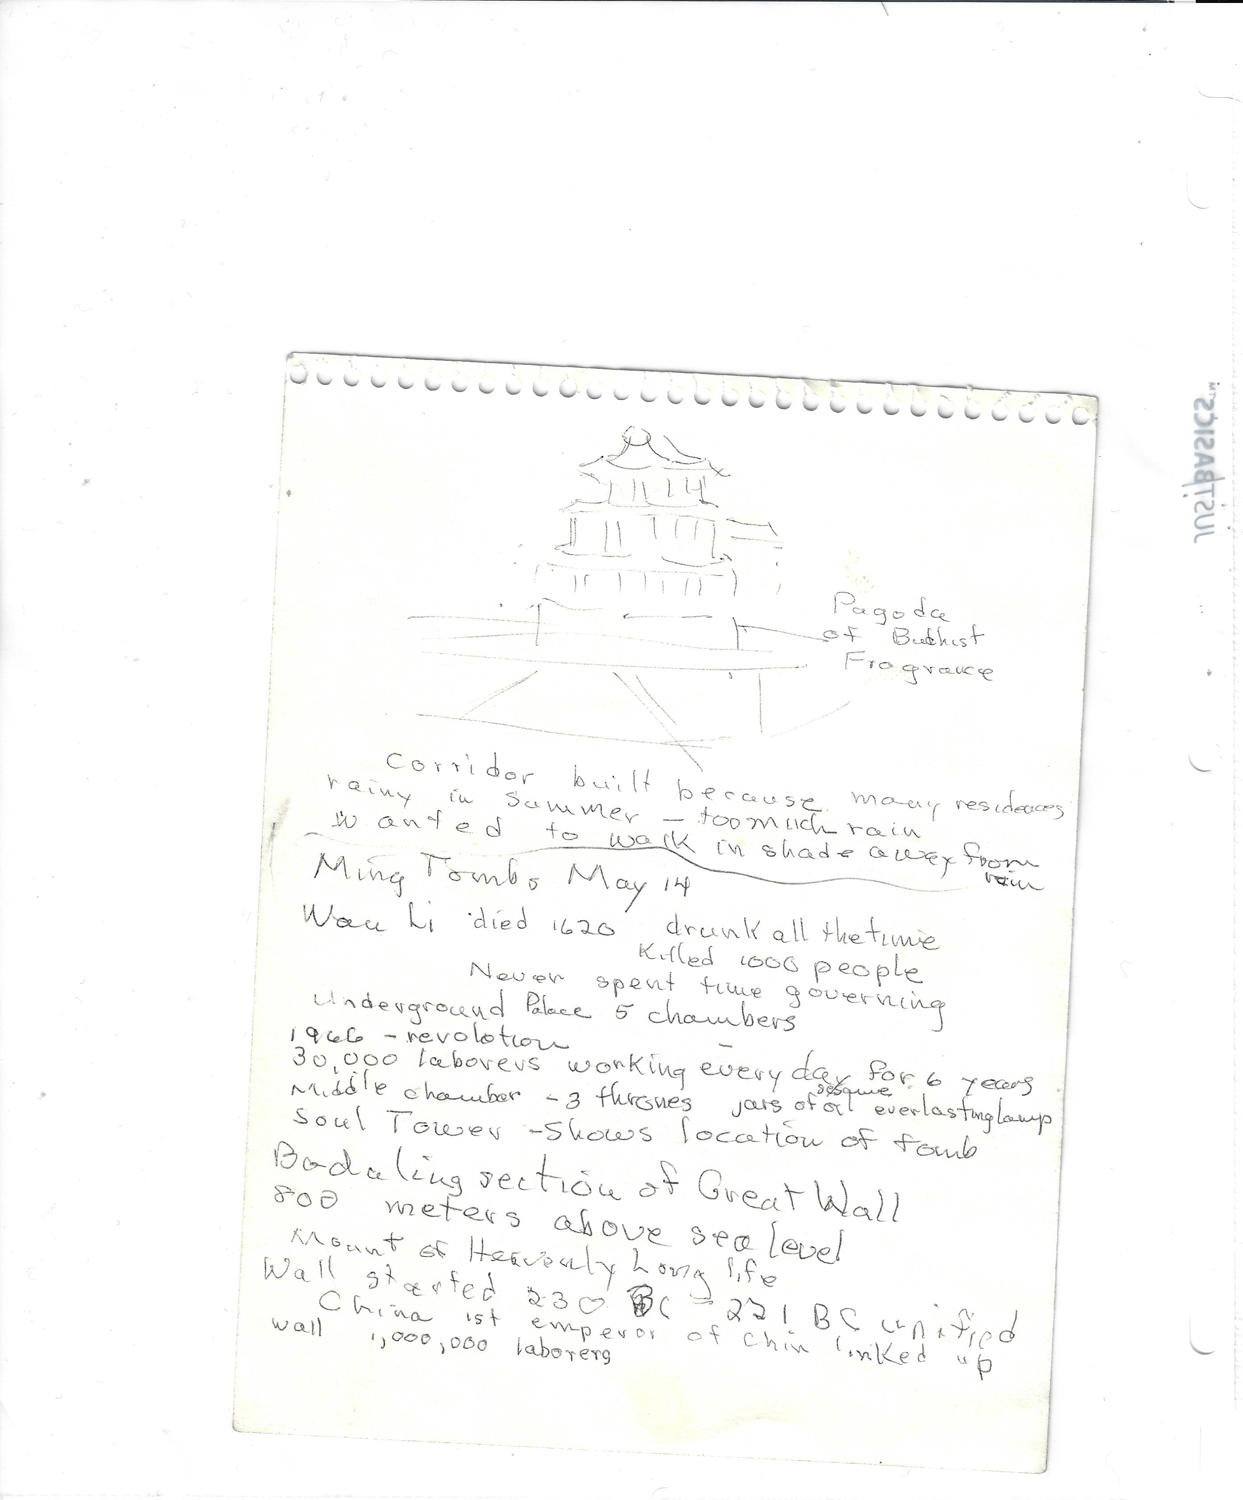 Pagoda
of Budhist
Fragrance
Corridor built because many residences
rainy in summer - too much rain
wanted to walk in shade away from
rain
Ming Tombs May 14
Wan Li died 1620 drunk all the time
Killed 1000 people
Never spent time governing
Underground Palace 5 chambers
1966 - revolotion
30,000 laborers working every day for 6 years
sesame
Middle chamber - 3 thrones jars of oil everlasting lamp
Soul Tower - Shows location of tomb
Badaling section of Great Wall
800 meters above sea level
Mount of Heavenly Long life
Wall started 230 BC - 221 BC unified
China 1st emperor of Chin linked up
wall 1,000,000 laborers
JUSTBASICS™